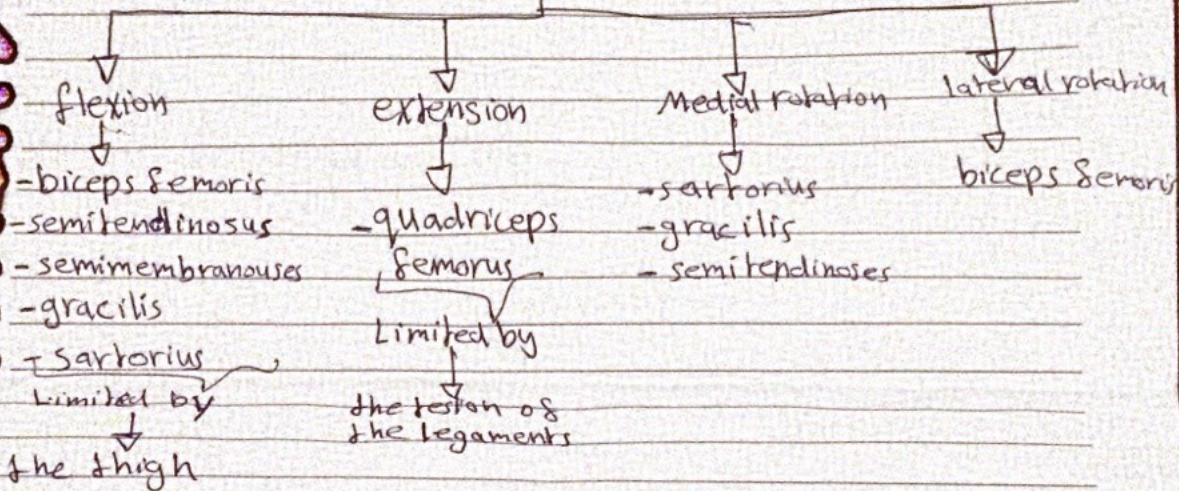 flexion
-biceps femoris
-semitendinosus
-semimembranouses
-gracilis
-Sartorius
Limited by
the thigh
extension
-quadriceps
femorus
Limited by
the tesion of
the legaments
Medial rotation
-sartorius
-gracilis
-semitendinoses
lateral rotation
biceps femoris